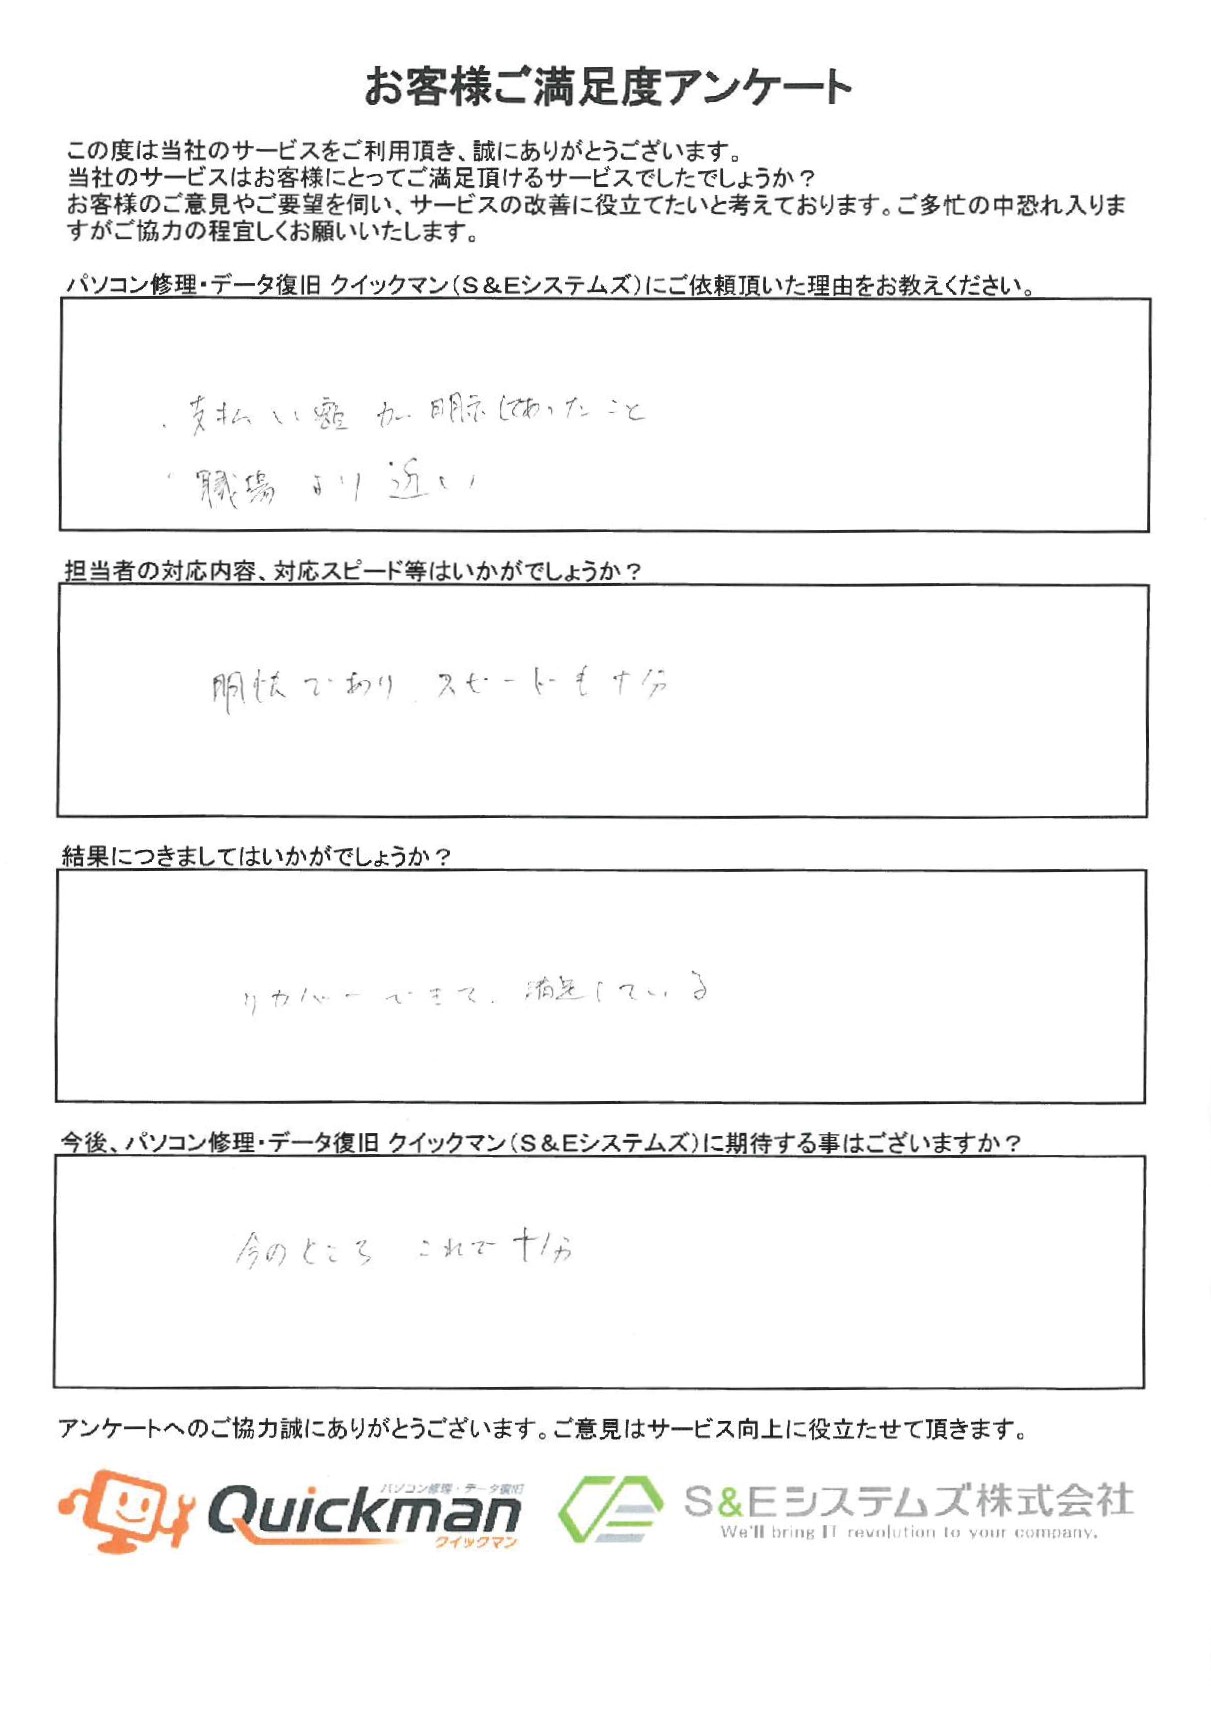 お客様ご満足度アンケート
この度は当社のサービスをご利用頂き、誠にありがとうございます。
当社のサービスはお客様にとってご満足頂けるサービスでしたでしょうか？
お客様のご意見やご要望を伺い、サービスの改善に役立てたいと考えております。ご多忙の中恐れ入りま
すがご協力の程宜しくお願いいたします。
パソコン修理・データ復旧 クイックマン（S＆Eシステムズ）にご依頼頂いた理由をお教えください。
・支払い額が明示してあったこと
・職場より近い
担当者の対応内容、対応スピード等はいかがでしょうか？
明快であり、スピードも十分
結果につきましてはいかがでしょうか？
リカバーできて、満足している
今後、パソコン修理・データ復旧 クイックマン（S＆Eシステムズ）に期待する事はございますか？
今のところ これで十分
アンケートへのご協力誠にありがとうございます。ご意見はサービス向上に役立たせて頂きます。
パソコン修理・データ復旧
Quickman
クイックマン
S&Eシステムズ株式会社
We'll bring IT revolution to your company.